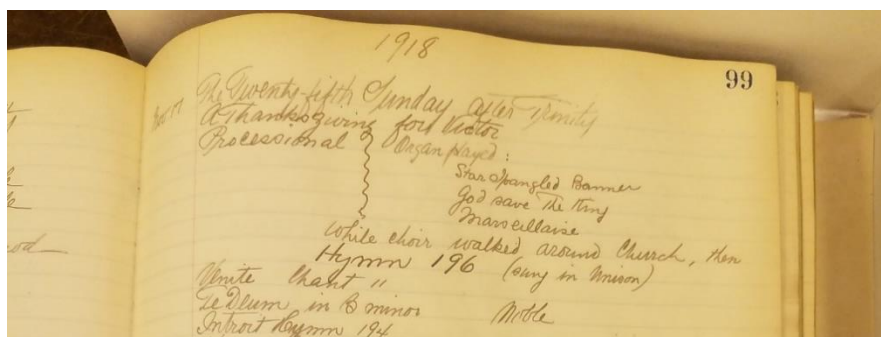 1918
99
Nov 17 The Twenty-fifth Sunday after Trinity
A Thanksgiving for Victor
Processional } Organ played :
Star Spangled Banner
God save The King
Marseillaise
While choir walked around Church, then
Hymn 196 (sung in Unison)
Venite Chant "
Te Deum in B minor Noble
Introit Hymn 194